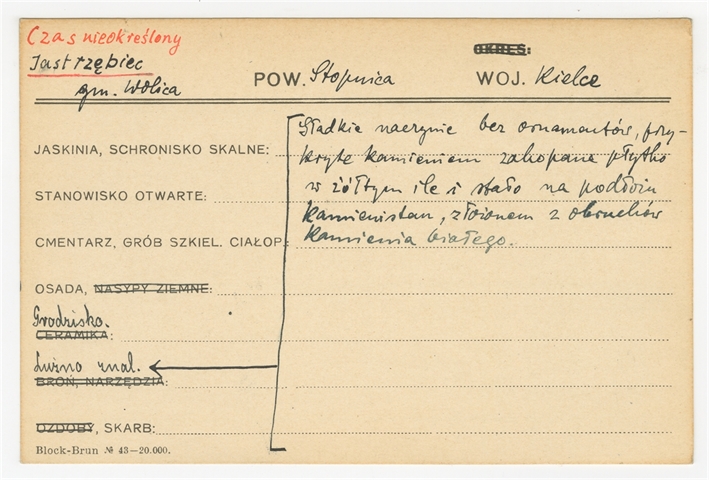 Czas nieokreślony
Jastrzębiec
gm. Wolica
OKRES:
POW. Stopnica
WOJ. Kielce
Gładkie naczynie bez ornamentów, przy-
kryte kamieniem zakopane płytko
w żółtym ile i stało na podłożu
kamienistem, złożonem z okruchów
kamienia białego.
JASKINIA, SCHRONISKO SKALNE:
STANOWISKO OTWARTE:
CMENTARZ, GRÓB SZKIEL. CIAŁOP.:
OSADA, NASYPY ZIEMNE:
Grodzisko.
CERAMIKA:
Luźno znal.
BROŃ, NARZĘDZIA:
OZDOBY, SKARB:
Block-Brun № 43—20.000.